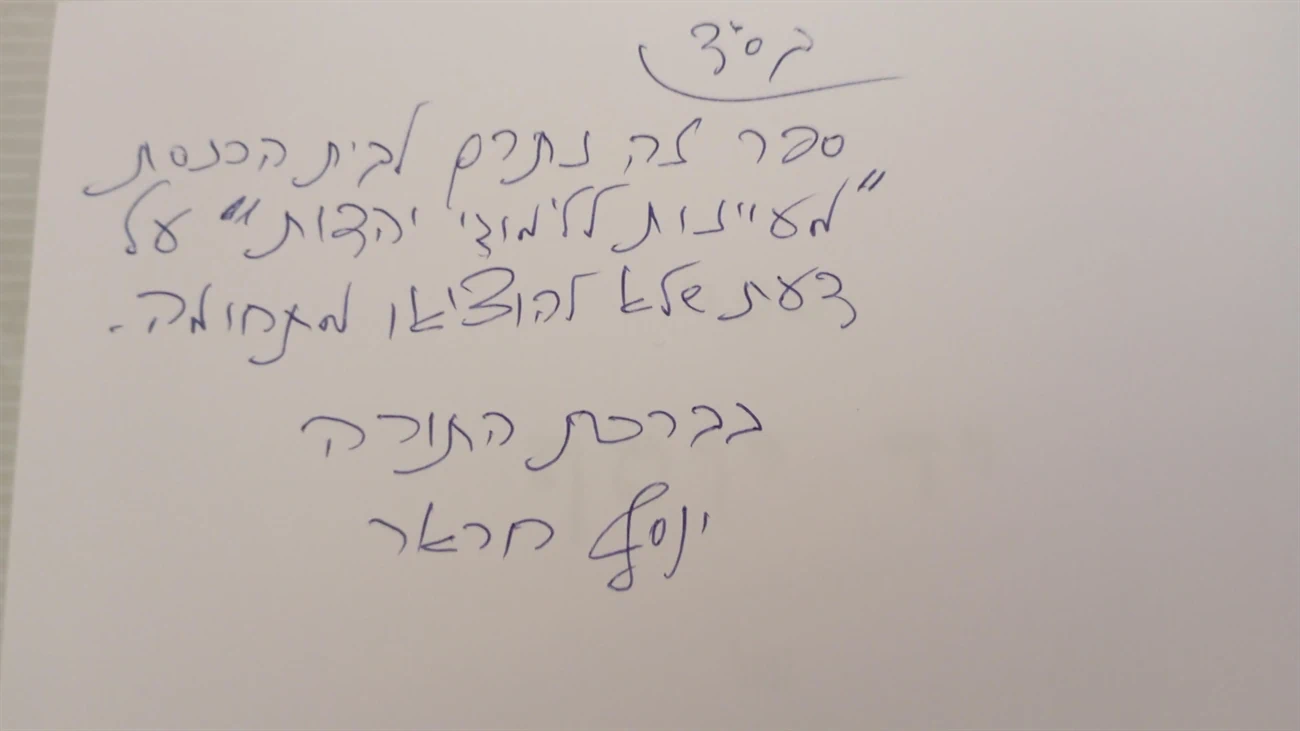 בס"ד
ספר זה נתרם לבית הכנסת
"מעיינות ללימודי יהדות" על
דעת שלא להוציאו מתחומה.
בברכת התורה
יוסף חראר